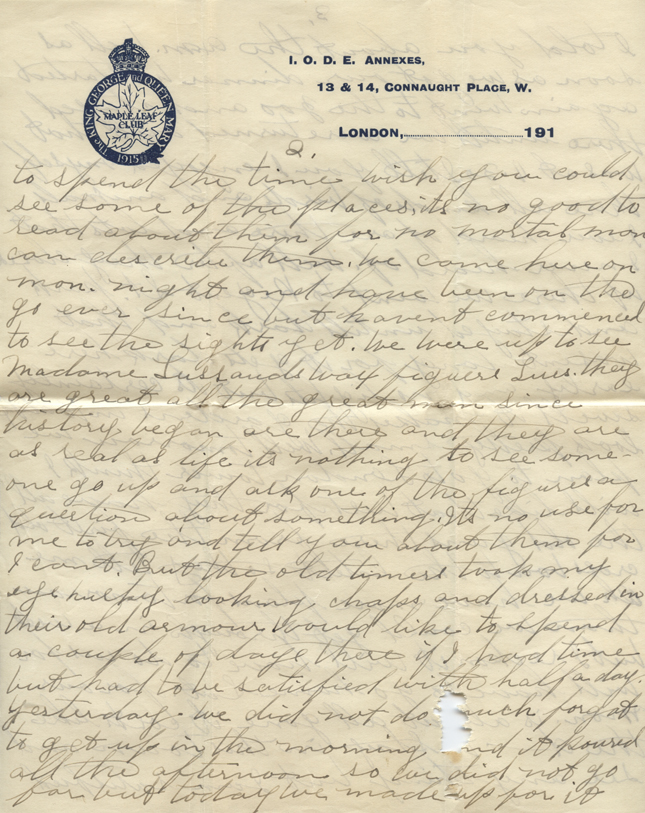 The KING GEORGE and QUEEN MARY
MAPLE LEAF
CLUB
1915
I. O. D. E. ANNEXES,
13 & 14, CONNAUGHT PLACE, W.
LONDON,..............................191
2.
to spend the time wish you could
see some of the places, its no good to
read about them for no mortal man
can describe them. We came here on
mon. night and have been on the
go ever since but havent commenced
to see the sights yet. We were up to see
Madame Tussauds wax figures Tues. they
are great all the great men since
history began are there and they are
as real as life its nothing to see some-
one go up and ask one of the figures a
question about something. Its no use for
me to try and tell you about them for
I cant. But the old timers took my
eye husky looking chaps and dressed in
their old armour would like to spend
a couple of days there if I had time
but had to be satisfied with half a day.
Yesterday we did not do much forgot
to get up in the morning and it poured
all the afternoon so we did not go
far but today we made up for it